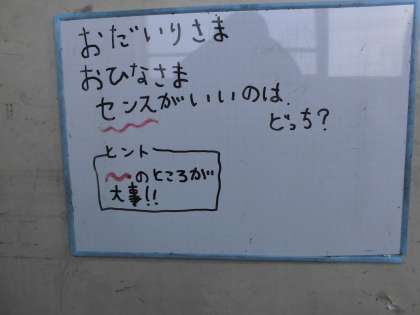 おだいりさま
おひなさま
センスがいいのは、
どっち?
ヒント
〜〜のところが
大事!!